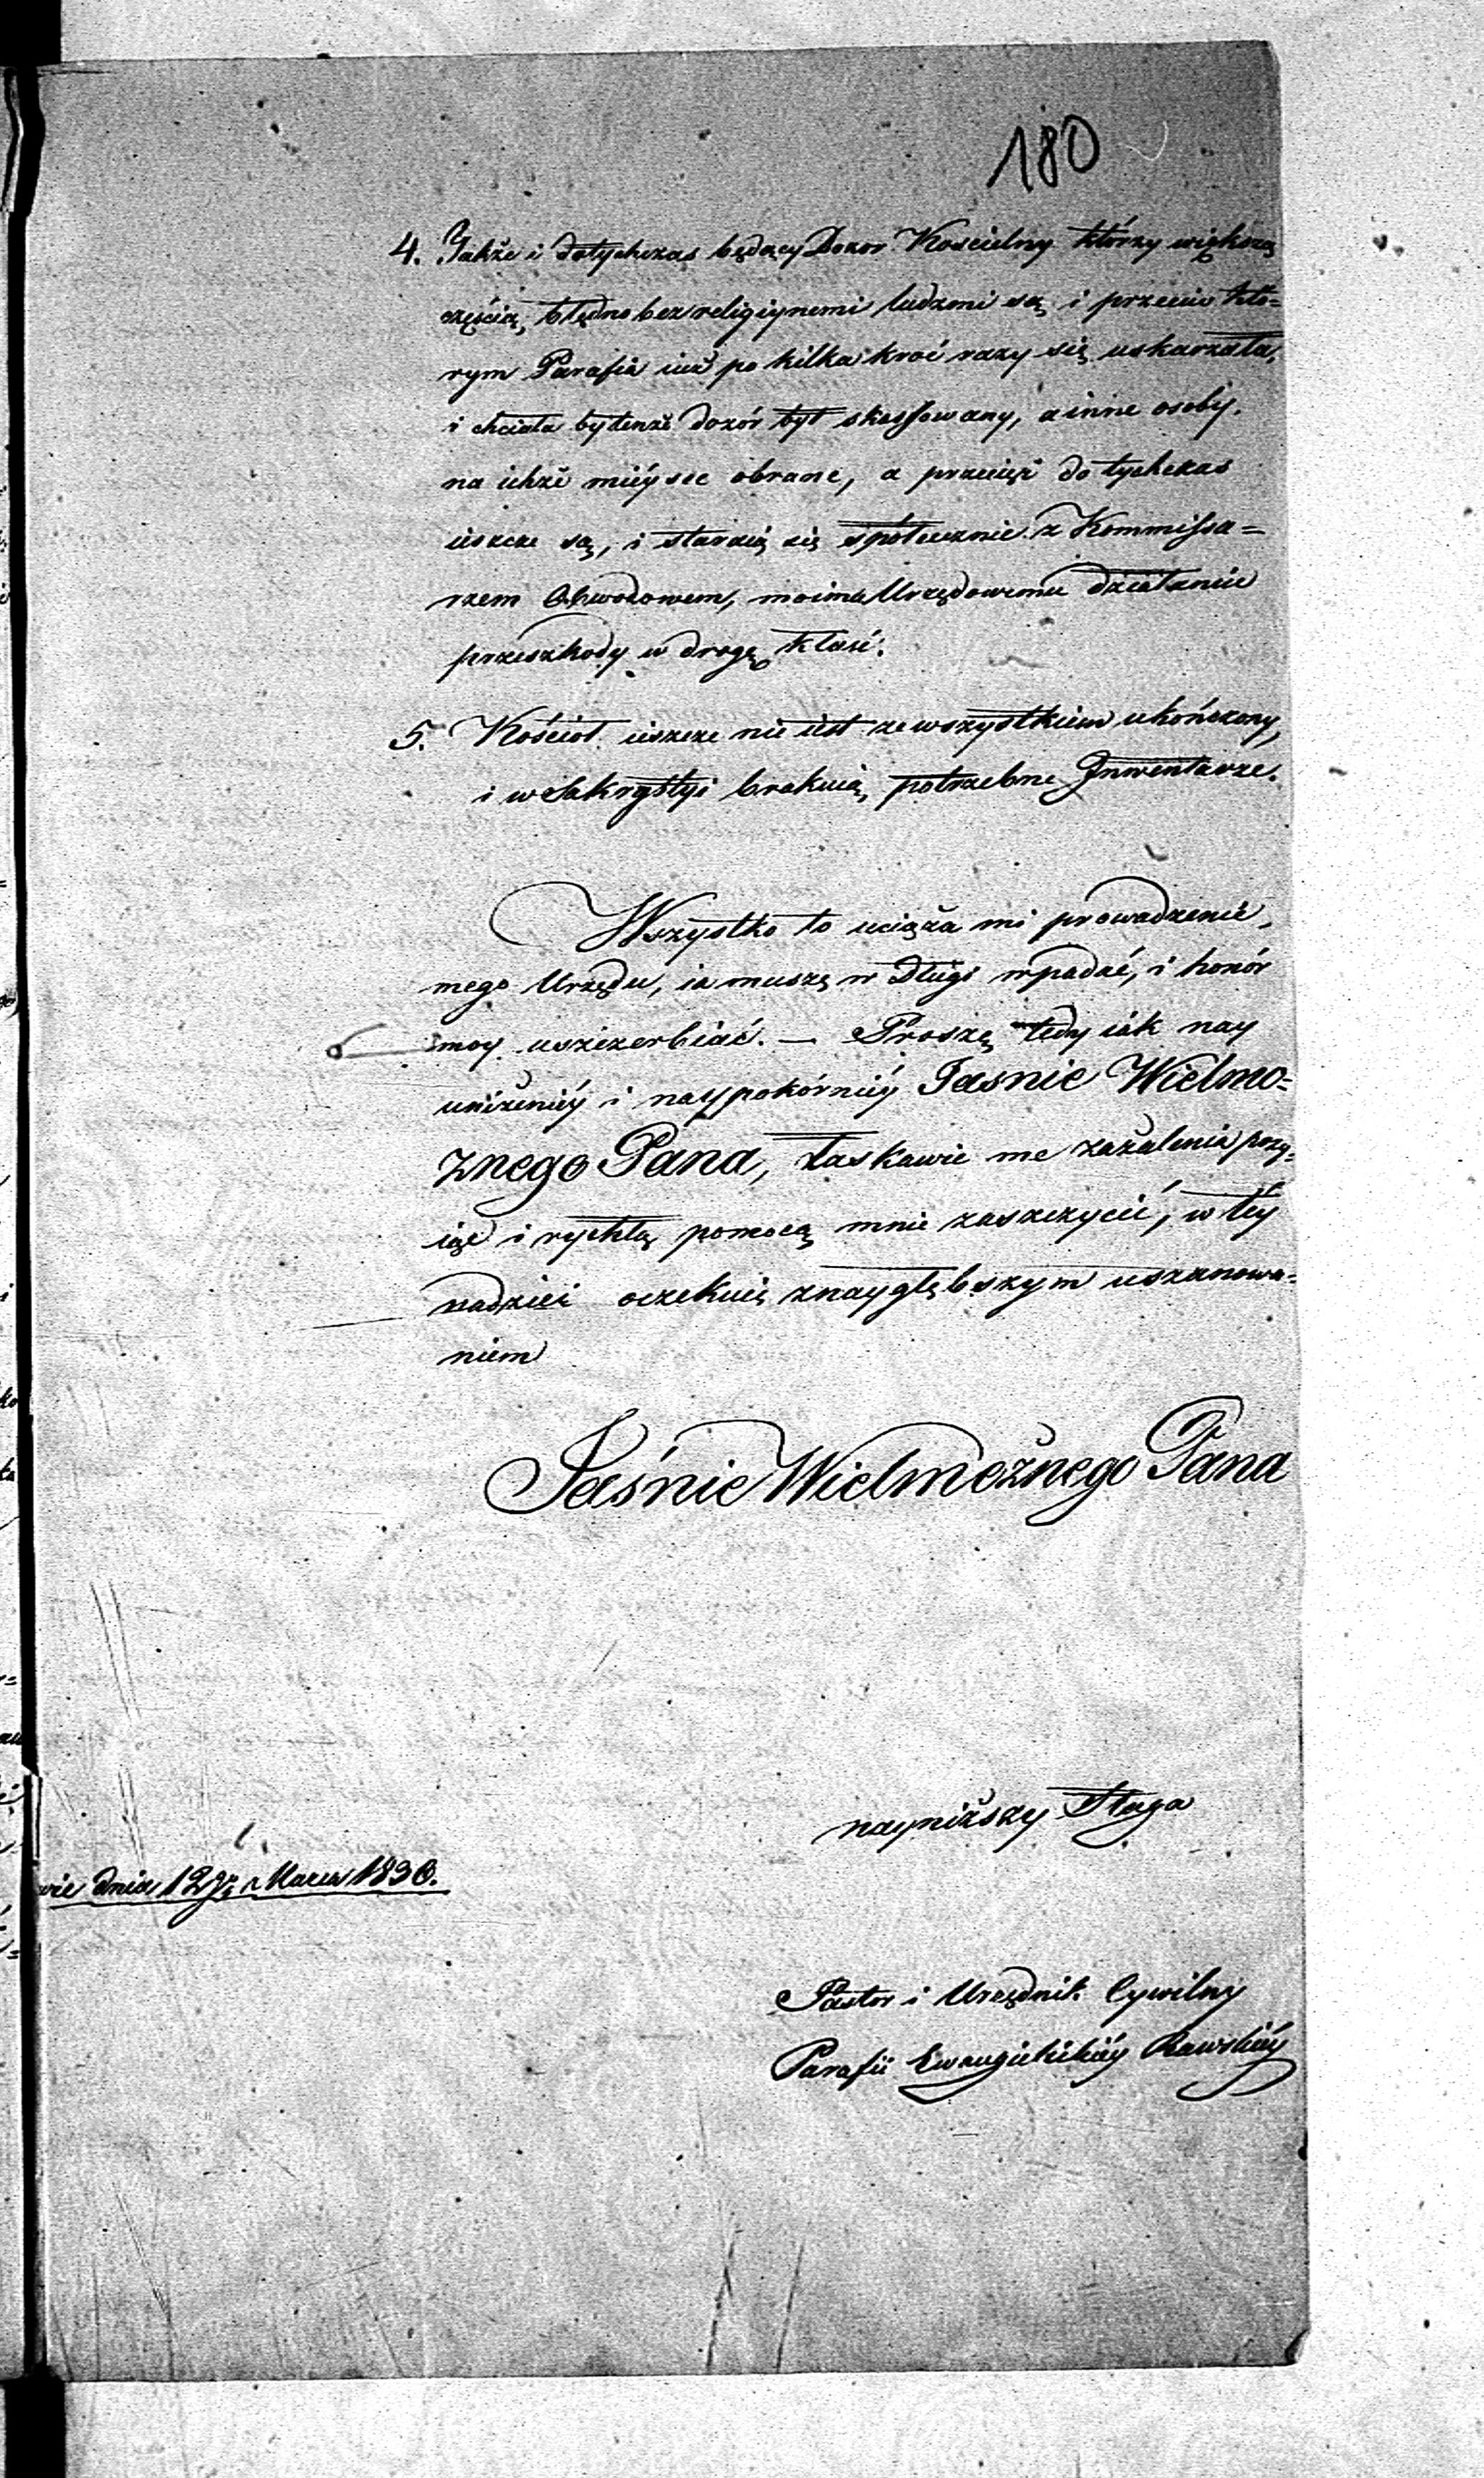 180
4. Jakże i dotychczas będący Dozor Kościelny którzy większą
częścią, błędno bezreligiynemi ludzmi są i przeciw któ=
rym Parafia iuż po kilka kroć razy się uskarzała,
i chciała by tenże dozór był skassowany, a inne osoby
na ichże mieysce obrane, a przecięż do tychczas
ieszcze są, i staraią się społecznie z Kommissa=
rzem Obwodowem, moimu Urzędowemu działaniu
przeszkody w drogę kłaść.
5. Kościoł ieszcze nie iest ze wszystkiem ukończony,
i w Sakrystyi brakuią, potrzebne Inwentarze.
Wszystko to uciąża mi prowadzenie,
mego Urzędu, ia muszę w Długi wpadać, i honór
moy uszczerbiać. — Proszę tedy iak nay
uniżeniéy i naypokórniéy Jasnie Wielmo=
znego Pana, łaskawie me zażalenia przy=
iąć i rychłą pomocą mnie zaszczycić, w téy
nadziei oczekuię z naygłębszym uszanowa=
niem
Jaśnie Wielmożnego Pana
nayniższy Sługa
wie dnia 12go Marca 1830.
Pastor i Urzędnik Cywilny
Parafii Ewangielickiéy Rawskiéy